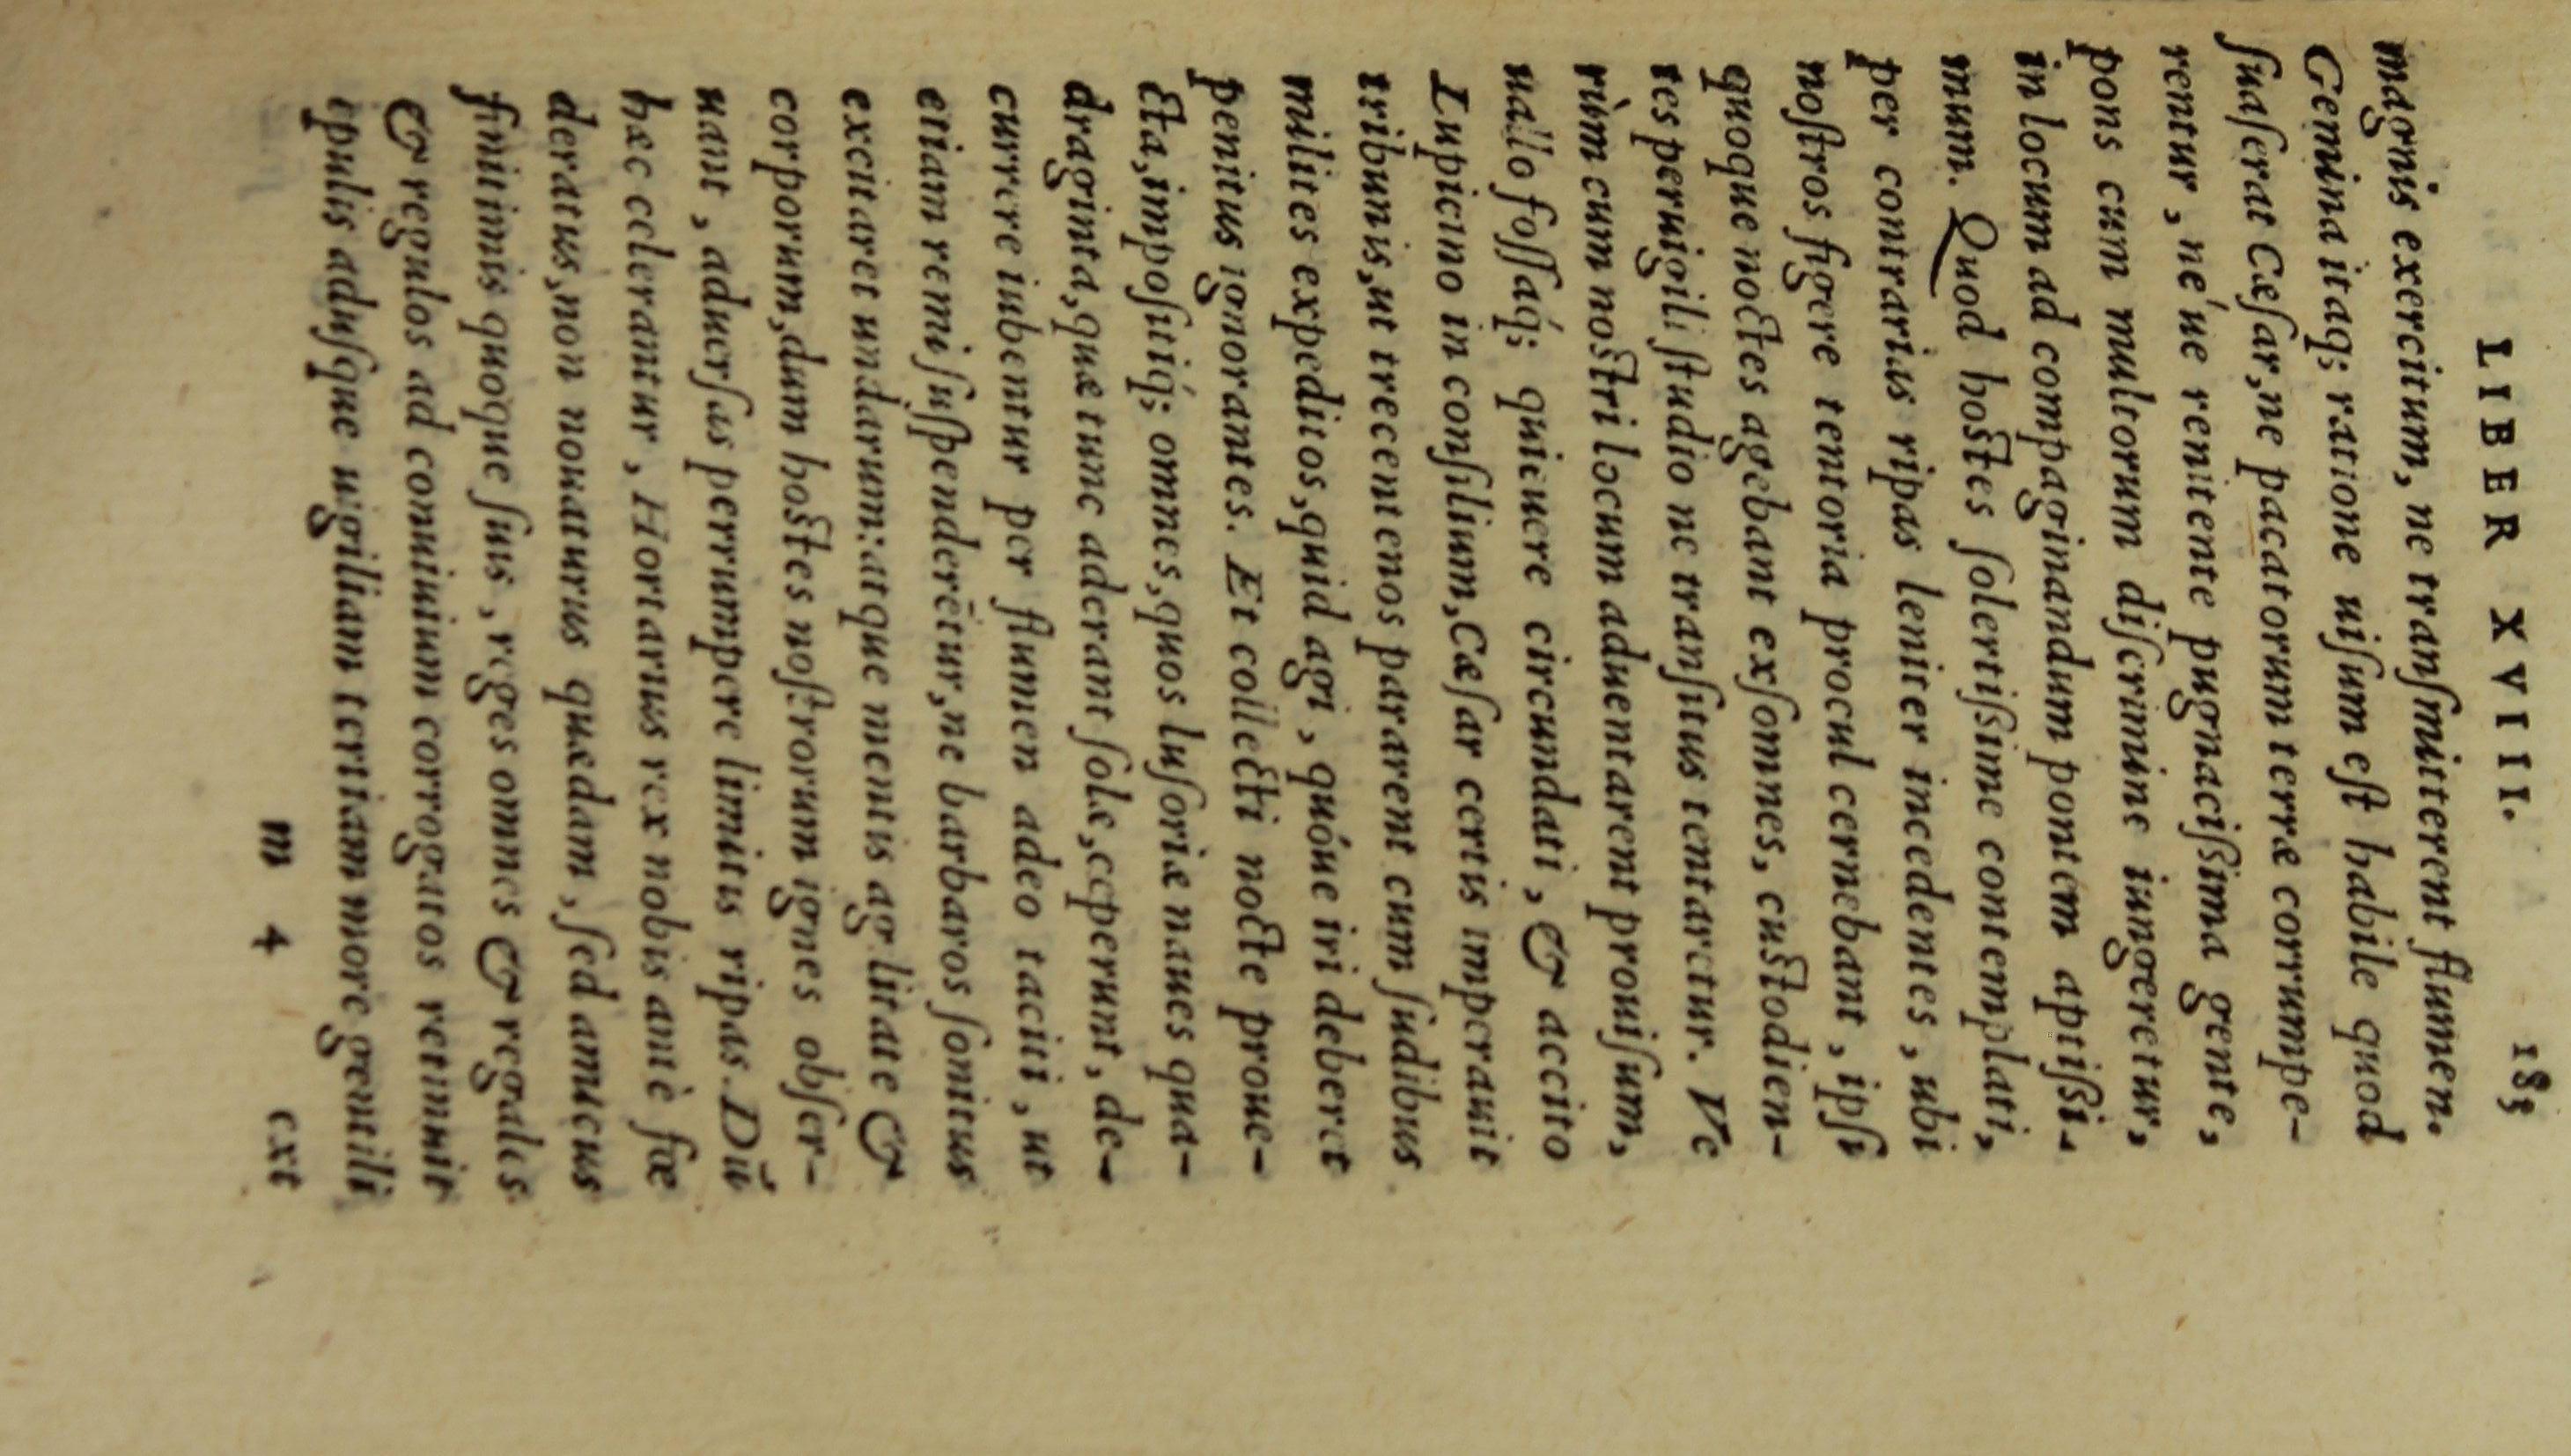 LIBER XVIII. 183
magnis exercitum, ne tranſmitterent flumen.
Gemina itaq; ratione uiſum eſt habile quod
ſuaſerat Cæſar, ne pacatorum terræ corrumpe-
rentur, né ue renitente pugnaciſsima gente,
pons cum multorum diſcrimine iungeretur,
in locum ad compaginandum pontem aptiſsi-
mum. Quod hostes ſolertiſsime contemplati,
per contrarias ripas leniter incedentes, ubi
noſtros figere tentoria procul cernebant, ipſi
quoque noctes agebant exſomnes, custodien-
tes peruigili ſtudio ne tranſitus tentaretur. Ve
rùm cum nostri locum aduentarent prouiſum,
uallo foſſaq́; quieuere circundati, & accito
Lupicino in conſilium, Cæſar certis imperauit
tribunis, ut trecentenos pararent cum ſudibus
milites expeditos, quid agi, quóue iri deberet
penitus ignorantes. Et collecti nocte proue-
cta, impoſitiq́; omnes, quos luſoriæ naues qua-
draginta, quæ tunc aderant ſolæ, ceperunt, de-
currere iubentur per flumen adeo taciti, ut
etiam remi ſuſpenderētur, ne barbaros ſonitus
excitaret undarum: atque mentis agilitate &
corporum, dum hostes noſtrorum ignes obſer-
uant, aduerſas perrumpere limitis ripas. Dū
hæc celerantur, Hortarius rex nobis antè fœ
deratus, non nouaturus quædam, ſed amicus
finitimis quoque ſuis, reges omnes & regales
& regulos ad conuiuium corrogatos retinuit
epulis aduſque uigiliam tertiam more gentili
m 4 ext